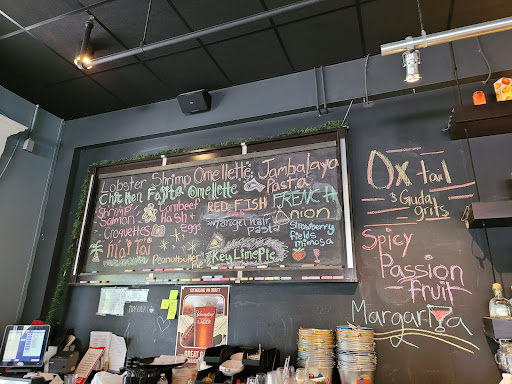 Lobster Shrimp Omellette Jambalaya
Chicken Fajita Omellette & Pasta
Shrimp &
Salmon
Croquettes
Cornbeef
Hash &
Eggs
RED FISH
Angel Hair
Pasta
FRENCH
Onion
Strawberry
fields
mimosa
Mai Tai
Peanutbutter
Key Lime Pie
Ox tail
3 Guda
grits
Spicy
Passion
fruit
Margarita
Yuengling
LAGER